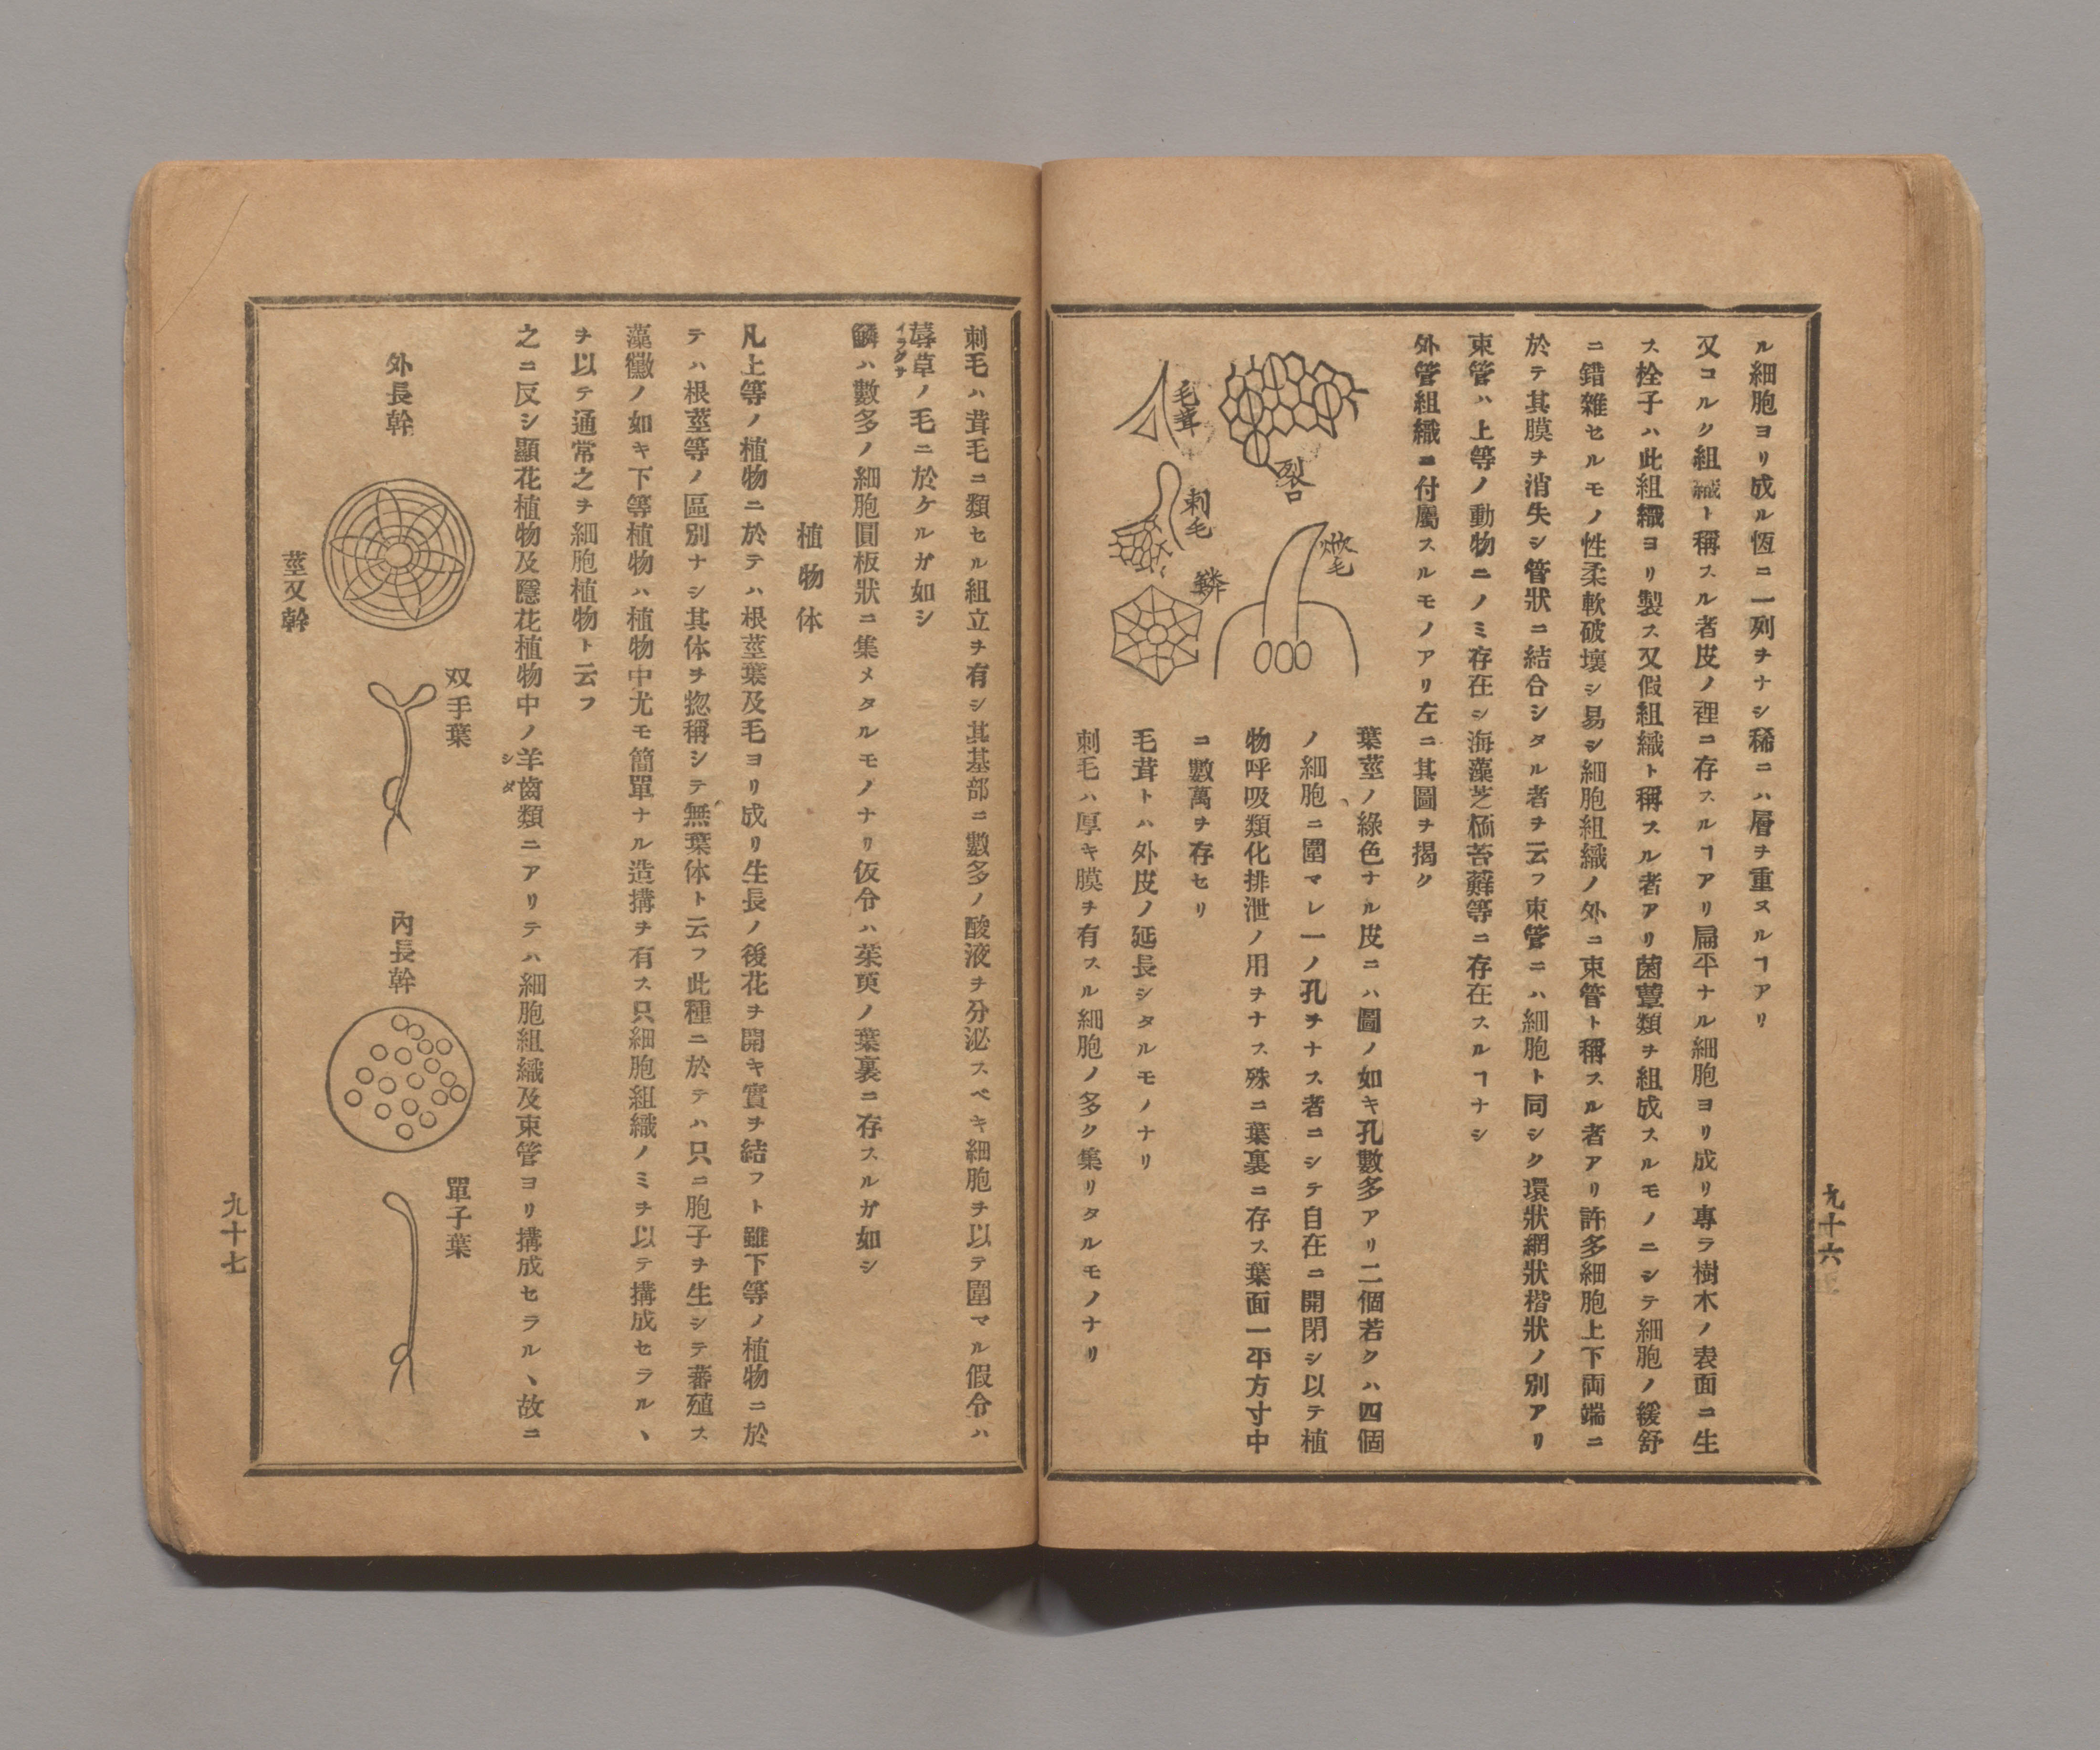 ル細胞ヨリ成ル恆ニ一列ヲナシ稀ニハ層ヲ重スルヿアリ
又コルク組織ト稱スル者皮ノ裡ニ存スルヿアリ扁平ナル細胞ヨリ成リ專ラ樹木ノ表面ニ生
ス栓子ハ此組織ヨリ製ス又假組織ト稱スル者アリ菌蕈類ヲ組成スルモノニシテ細胞ノ緩舒
ニ錯雜セルモノ性柔軟破壞シ易シ細胞組織ノ外ニ束管ト稱スル者アリ許多細胞上下両端ニ
於テ其膜ヲ消失シ管狀ニ結合シタル者ヲ云フ束管ニハ細胞ト同シク環狀網狀楷狀ノ別アリ
束管ハ上等ノ動物ニノミ存在シ海藻芝栭苔蘚等ニ存在スルヿナシ
外管組織ニ付屬スルモノアリ左ニ其圖ヲ揭ク
裂口
毛茸
刺毛
鱗
葉莖ノ綠色ナル皮ニハ圖ノ如キ孔數多アリ二個若クハ四個
ノ細胞ニ圍マレ一ノ孔ヲナス者ニシテ自在ニ開閉シ以テ植
物呼吸類化排泄ノ用ヲナス殊ニ葉裏ニ存ス葉面一平方寸中
ニ數萬ヲ存セリ
毛茸トハ外皮ノ延長シタルモノナリ
刺毛ハ厚キ膜ヲ有スル細胞ノ多ク集リタルモノナリ
九十六
刺毛ハ茸毛ニ類セル組立ヲ有シ其基部ニ數多ノ酸液ヲ分泌スベキ細胞ヲ以テ圍マル假令ハ
蕁草ノ毛ニ於ケルガ如シ
イラクサ
鱗ハ數多ノ細胞圓板狀ニ集メタルモノナリ仮令ハ茱萸ノ葉裏ニ存スルガ如シ
植物体
凡上等ノ植物ニ於テハ根莖葉及毛ヨリ成リ生長ノ後花ヲ開キ實ヲ結フト雖下等ノ植物ニ於
テハ根莖等ノ區別ナシ其体ヲ惣稱シテ無葉体ト云フ此種ニ於テハ只ニ胞子ヲ生シテ蕃殖ス
藻黴ノ如キ下等植物ハ植物中尤モ簡單ナル造搆ヲ有ス只細胞組織ノミヲ以テ搆成セラル、
ヲ以テ通常之ヲ細胞植物ト云フ
之ニ反シ顯花植物及隱花植物中ノ羊齒類ニアリテハ細胞組織及束管ヨリ搆成セラル、故ニ
シダ
外長幹
双手葉
內長幹
單子葉
莖又幹
九十七